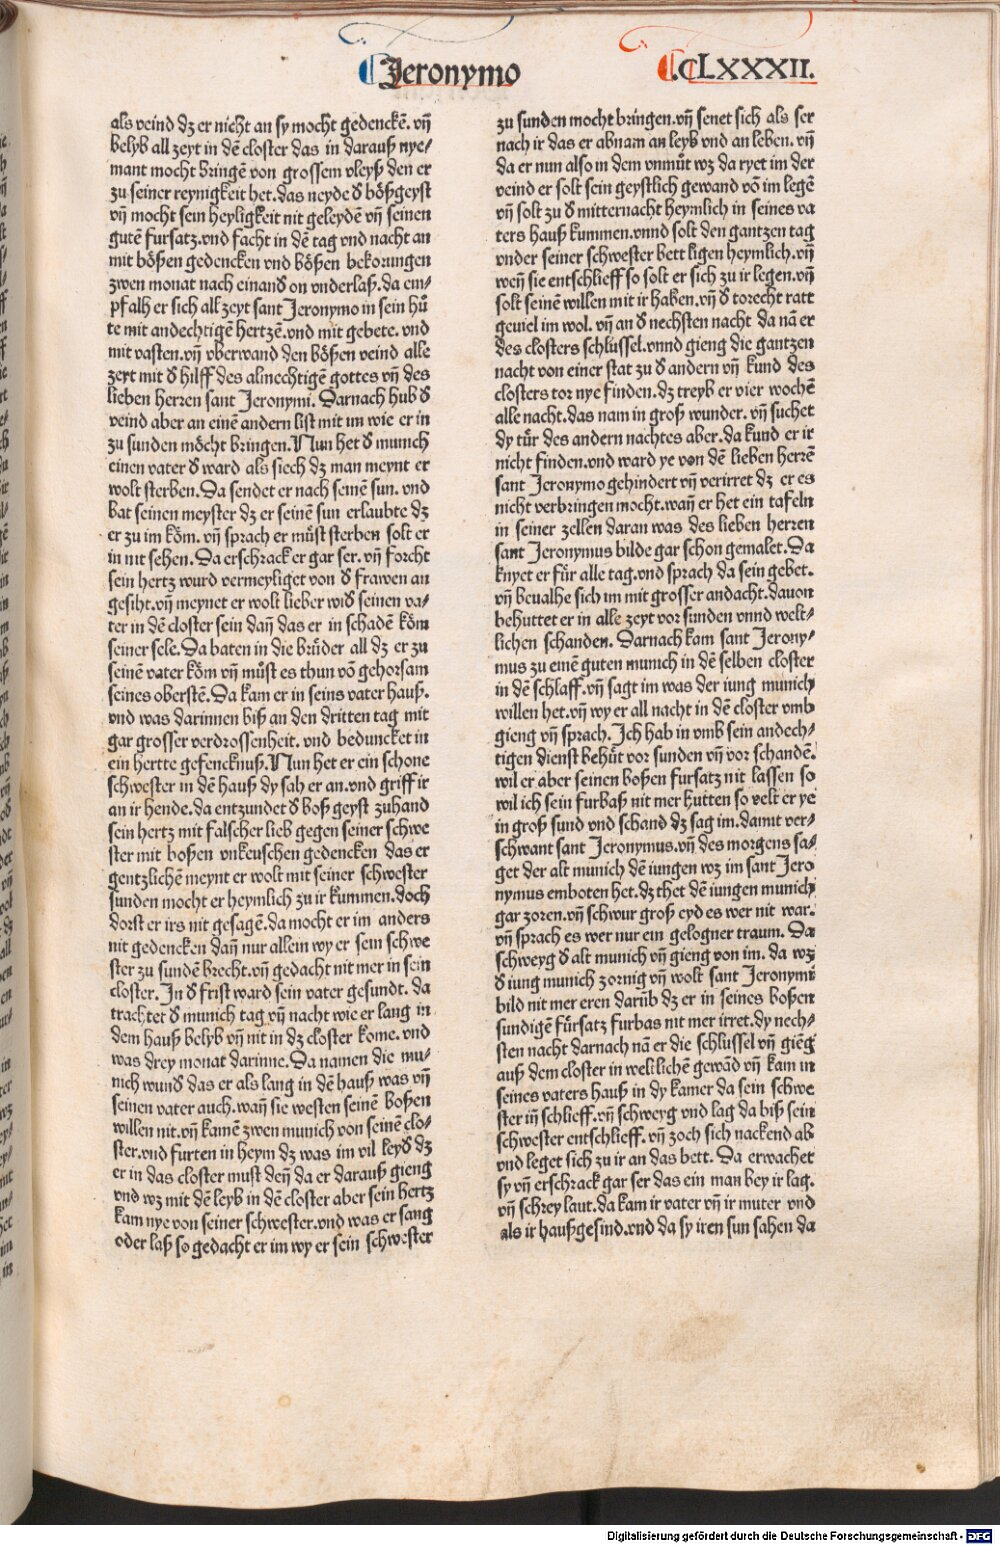 Jeronymo
.cLXXXII.
als veind dz er nicht an sy mocht gedenckē. vn̄
belyb all zeyt in dē closter das in darauß nye⸗
mant mocht bringē von grossem vleyß den er
zu seiner reynigkeit het. das neyde ď bößgeyst
vn̄ mocht sein heyligkeit nit geleydē vn̄ seinen
gutē fursatz. vnd facht in dē tag vnd nacht an
mit bößen gedencken vnd bößen bekorungen
zwen monat nach einanď on vnderlaß. da em⸗
pfalh er sich all zeyt sant Jeronymo in sein hů
te mit andechtigē hertzē. vnd mit gebete. vnd
mit vasten. vn̄ vberwand den bößen veind alle
zeyt mit ď hilff des almechtigē gottes vn̄ des
lieben herren sant Jeronymi. Darnach hub ď
veind aber an einē andern list mit im wie er in
zu sunden möcht bringen. Nun het ď munich
einen vater ď ward als siech dz man meynt er
wolt sterben. Da sendet er nach seinē sun. vnd
bat seinen meyster dz er seinē sun erlaubte dz
er zu im köm. vn̄ sprach er můst sterben solt er
in nit sehen. Da erschrack er gar ser. vn̄ forcht
sein hertz wurd vermeyliget von ď frawen an
gesiht. vn̄ meynet er wolt lieber wiď seinen va⸗
ter in dē closter sein dan̄ das er in schadē köm
seiner sele. Da baten in die brüder all dz er zu
seinē vater köm vn̄ můst es thun vō gehorsam
seines oberstē. Da kam er in seins vater hauß.
vnd was darinnen biß an den dritten tag mit
gar grosser verdrossenheit. vnd beduncket in
ein hertte gefencknuß. Nun het er ein schone
schwester in dē hauß dy sah er an. vnd griff ir
an ir hende. da entzundet ď boß geyst zuhand
sein hertz mit falscher lieb gegen seiner schwe
ster mit boßen vnkeuschen gedencken das er
gentzlichē meynt er wolt mit seiner schwester
sunden mocht er heymlich zu ir kummen. doch
dorst er irs nit gesagē. da mocht er im anders
nit gedencken dan̄ nur allein wy er sein schwe
ster zu sundē brecht. vn̄ gedacht nit mer in sein
closter. In ď frist ward sein vater gesundt. da
trachtet ď munich tag vn̄ nacht wie er lang in
dem hauß belyb vn̄ nit in dz closter kome. vnd
was drey monat darinne. Da namen die mu⸗
nich wunď das er als lang in dē hauß was vn̄
seinen vater auch. wan̄ sie westen seinē boßen
willen nit. vn̄ kamē zwen munich von seinē clo⸗
ster. vnd furten in heym dz was im vil leyď dz
er in das closter must den̄ da er darauß gieng
vnd wz mit dē leyb in dē closter aber sein hertz
kam nye von seiner schwester. vnd was er sang
oder laß so gedacht er im wy er sein schwester
zu sunden mocht bringen. vn̄ senet sich als ser
nach ir das er abnam an leyb vnd an leben. vn̄
da er nun also in dem vnmůt wz da ryet im der
veind er solt sein geystlich gewand vō im legē
vn̄ solt zu ď mitternacht heymlich in seines va
ters hauß kummen. vnnd solt den gantzen tag
vnder seiner schwester bett ligen heymlich. vn̄
wen̄ sie entschlieff so solt er sich zu ir legen. vn̄
solt seinē willen mit ir haben. vn̄ ď torecht ratt
geuiel im wol. vn̄ an ď nechsten nacht da nā er
des closters schlussel. vnnd gieng die gantzen
nacht von einer stat zu ď andern vn̄ kund des
closters tor nye finden. dz treyb er vier wochē
alle nacht. das nam in groß wunder. vn̄ suchet
dy tür des andern nachtes aber. da kund er ir
nicht finden. vnd ward ye von dē lieben herrē
sant Jeronymo gehindert vn̄ verirret dz er es
nicht verbringen mocht. wan̄ er het ein tafeln
in seiner zellen daran was des lieben herren
sant Jeronymus bilde gar schon gemalet. Da
knyet er für alle tag. vnd sprach da sein gebet.
vn̄ beualhe sich im mit grosser andacht. dauon
behuttet er in alle zeyt vor sunden vnnd welt⸗
lichen schanden. Darnach kam sant Jerony⸗
mus zu einē guten munich in dē selben closter
in dē schlaff. vn̄ sagt im was der iung munich
willen het. vn̄ wy er all nacht in dē closter vmb
gieng vn̄ sprach. Ich hab in vmb sein andech⸗
tigen dienst behüt vor sunden vn̄ vor schandē.
wil er aber seinen boßen fursatz nit lassen so
wil ich sein furbaß nit mer hutten so velt er ye
in groß sund vnd schand dz sag im. damit ver⸗
schwant sant Jeronymus. vn̄ des morgens sa⸗
get der alt munich dē iungen wz im sant Jero
nymus emboten het. dz thet dē iungen munich
gar zoren. vn̄ schwur groß eyd es wer nit war.
vn̄ sprach es wer nur ein gelogner traum. Da
schweyg ď alt munich vn̄ gieng von im. da wz
ď iung munich zornig vn̄ wolt sant Jeronymi
bild nit mer eren darüb dz er in seines boßen
sundigē fürsatz furbas nit mer irret. dy nech⸗
sten nacht darnach nā er die schlussel vn̄ giēg
auß dem closter in weltlichē gewād vn̄ kam in
seines vaters hauß in dy kamer da sein schwe
ster in̄ schlieff. vn̄ schweyg vnd lag da biß sein
schwester entschlieff. vn̄ zoch sich nackend ab
vnd leget sich zu ir an das bett. Da erwachet
sy vn̄ erschrack gar ser das ein man bey ir lag.
vn̄ schrey laut. da kam ir vater vn̄ ir muter vnd
als ir haußgesind. vnd da sy iren sun sahen da
Digitalisierung gefördert durch die Deutsche Forschungsgemeinschaft - DFG